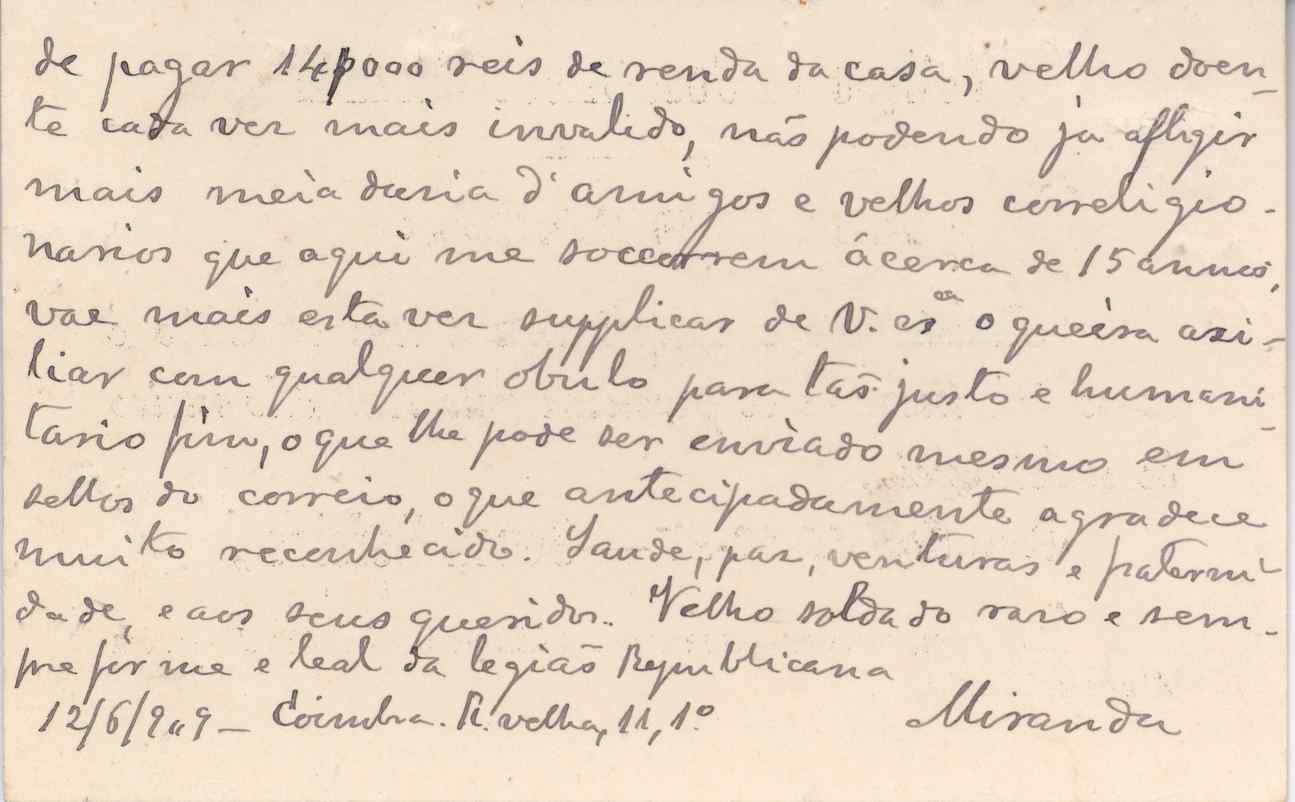 de pagar 14$000 reis de renda da casa, velho doen-
te cada vez mais invalido, não podendo já afligir
mais meia duzia d'amigos e velhos correligio-
narios que aqui me soccorrem ácerca de 15 annos,
vae mais esta vez supplicar de V. exª o queira axi-
liar com qualquer obulo para tão justo e humani-
tario fim, o que lhe pode ser enviado mesmo em
sellos do correio, o que antecipadamente agradece
muito reconhecido. Saude, paz, venturas e fraterni-
dade, e aos seus queridos. Velho soldado raro e sem-
pre firme e leal da legião Republicana
12/6/909 – Coimbra. R. velha, 11, 1º Miranda